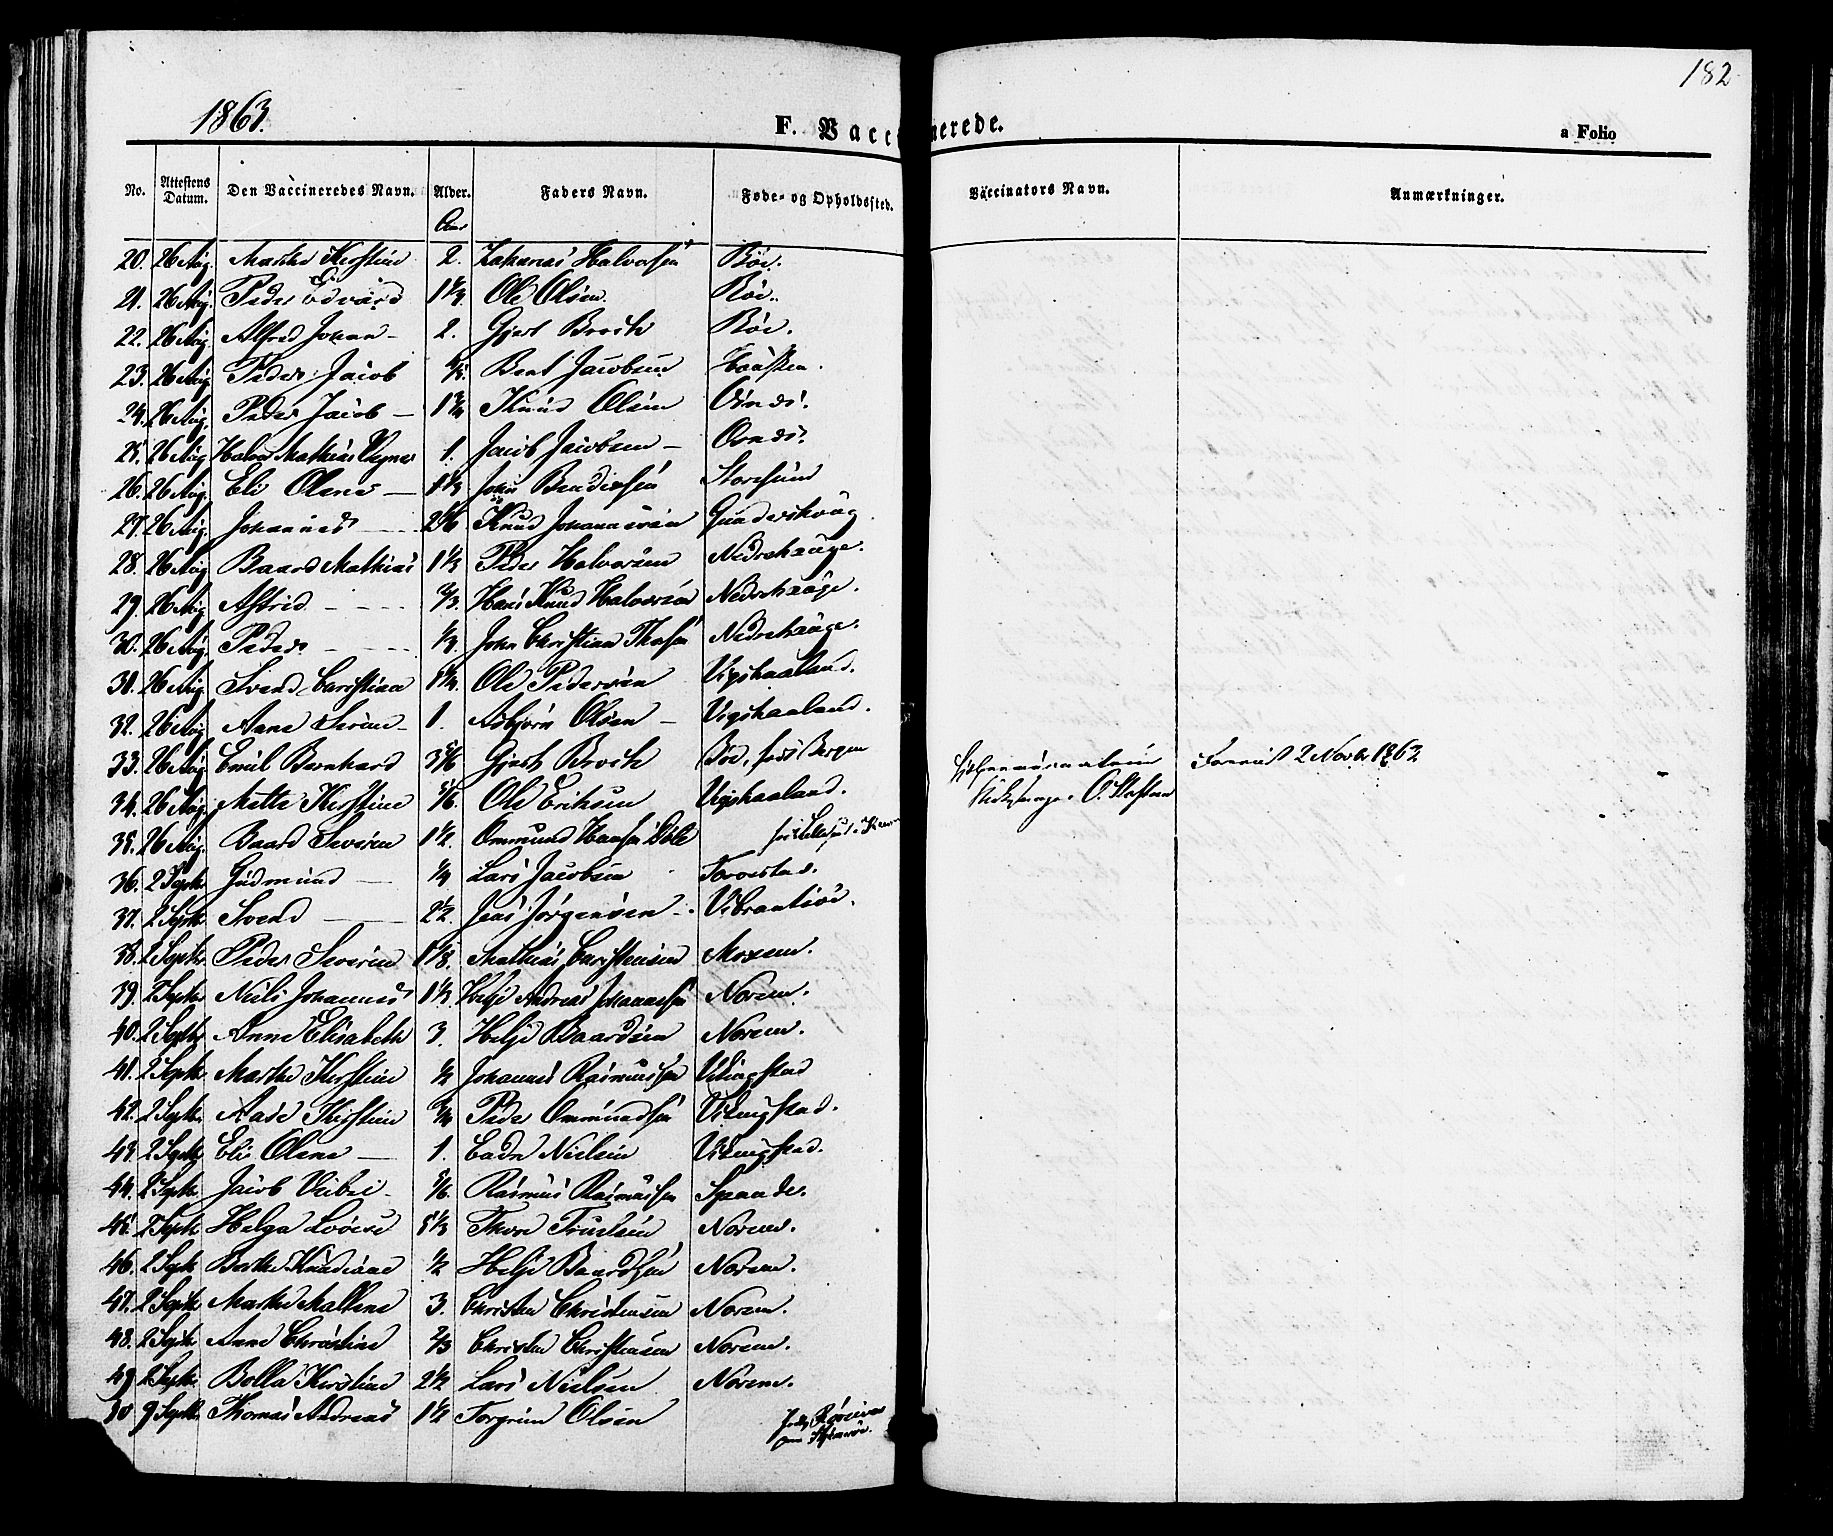 182
1863.
F. Vaccinerede.
a Folio
No. Attestens Datum. Den Vaccineredes Navn. Alder. Faders Navn. Føde- og Opholdssted. Vaccinators Navn. Anmærkninger.
Aar
20. 26 Aug. Marthe Kirstine 2. Halvorsen Böe.
21. 26 Aug. Peder Edvard 1 1/3 Ole Olsen Böe.
22. 26 Aug. Alfred Johan - 2. Gjert Brock Böe.
23. 26 Aug. Peder Jacob Bent Jacobsen
24. 26 Aug. Peder Jacob - 1 3/4 Knud Olsen
25. 26 Aug. Mathias 1. Jacob Jacobsen -
26. 26 Aug. Eli Olene - 1 1/3 John Storesund
27. 26 Aug. Johannes - Knud Johannesen Gunderskaag
28. 26 Aug. Baard Mathias 1 1/3 Peder Halvorsen Nedrehauge.
29. 26 Aug. Astrid - 2/3 Hans Knud Halvorsen Nedrehauge.
30. 26 Aug. Peder - 1/3 John Christian Nedrehauge.
31. 26 Aug. Svend Christian Ole Pedersen Vigshaaland.
32. 26 Aug. Anne - 1. Asbjørn Olsen - Vigshaaland.
33. 26 Aug. Emil Bernhard 3 5/6 Gjert Brock Böe, Bergen 2 Novbr 1863
34. 26 Aug. Mette Kirstine 5/6 Ole Eriksen Vigshaaland. O.
35. 26 Aug. Baard Severin 1 1/2. Ommund Hansen
36. 2 Septbr Gudmund - 1/4 Lars Jacobsen Torvestad.
37. 2 Septbr Svend - 2 1/2. Jens Jörgensen - Vibrantsöe.
38. 2 Septbr Peder Severin Mathias Christensen
39. 2 Septbr Niels Johannes 1 1/3. Helje Andreas Johannesen Norem.
40. 2 Septbr Anne Elisabeth 3. Helje Baardsen Norem.
41. 2 Septbr Marthe Kirstine 1/2 Johannes Rasmussen Vikingstad
42. 2 Septbr Aase Kirstine 3/4 Peder Ommundsen Vikingstad.
43. 2 Septbr Eli Olene - 1. Nielsen Vikingstad.
44. 2 Septbr Jacob - 5/6 Rasmus Rasmussen Spande.
45. 2 Septbr Helga Lovise Thore Truelsen Norem.
46. 2 Septbr Berthe Knudiane 1/2 Helje Baardsen Norem.
47. 2 Septbr Marthe Malene 3. Christen Christensen Norem.
48. 2 Septbr Anne Christine 2/3 Christen Christensen Norem.
49 2 Septbr Bolla Kirstine 2 1/2 Lars Nielsen Norem.
50 9 Septbr Thomas Andreas 1 1/2 Torgrim Olsen